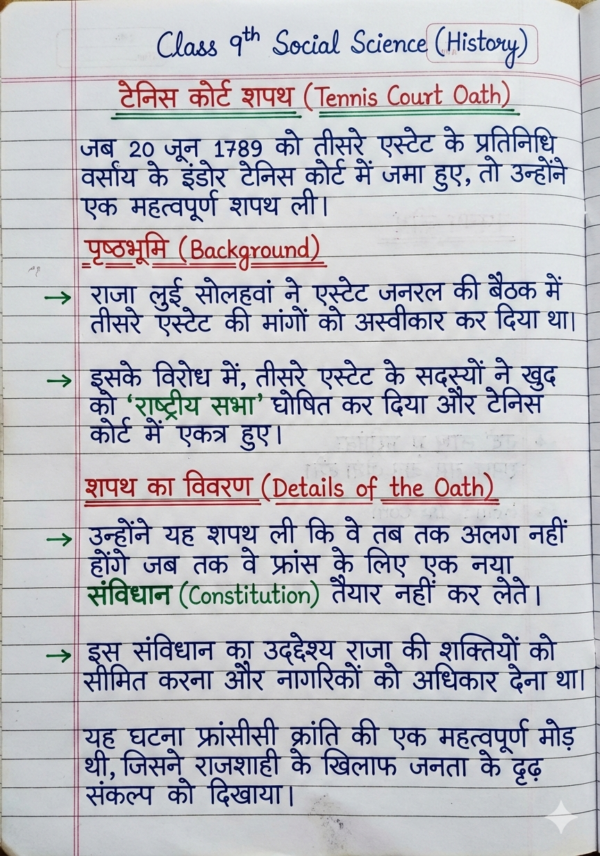 Class 9th Social Science (History)
टेनिस कोर्ट शपथ (Tennis Court Oath)
जब 20 जून 1789 को तीसरे एस्टेट के प्रतिनिधि
वर्साय के इंडोर टेनिस कोर्ट में जमा हुए, तो उन्होंने
एक महत्वपूर्ण शपथ ली।
पृष्ठभूमि (Background)
→ राजा लुई सोलहवां ने एस्टेट जनरल की बैठक में
तीसरे एस्टेट की मांगों को अस्वीकार कर दिया था।
→ इसके विरोध में, तीसरे एस्टेट के सदस्यों ने खुद
को 'राष्ट्रीय सभा' घोषित कर दिया और टेनिस
कोर्ट में एकत्र हुए।
शपथ का विवरण (Details of the Oath)
→ उन्होंने यह शपथ ली कि वे तब तक अलग नहीं
होंगे जब तक वे फ्रांस के लिए एक नया
संविधान (Constitution) तैयार नहीं कर लेते।
→ इस संविधान का उद्देश्य राजा की शक्तियों को
सीमित करना और नागरिकों को अधिकार देना था।
यह घटना फ्रांसीसी क्रांति की एक महत्वपूर्ण मोड़
थी, जिसने राजशाही के खिलाफ जनता के दृढ़
संकल्प को दिखाया।